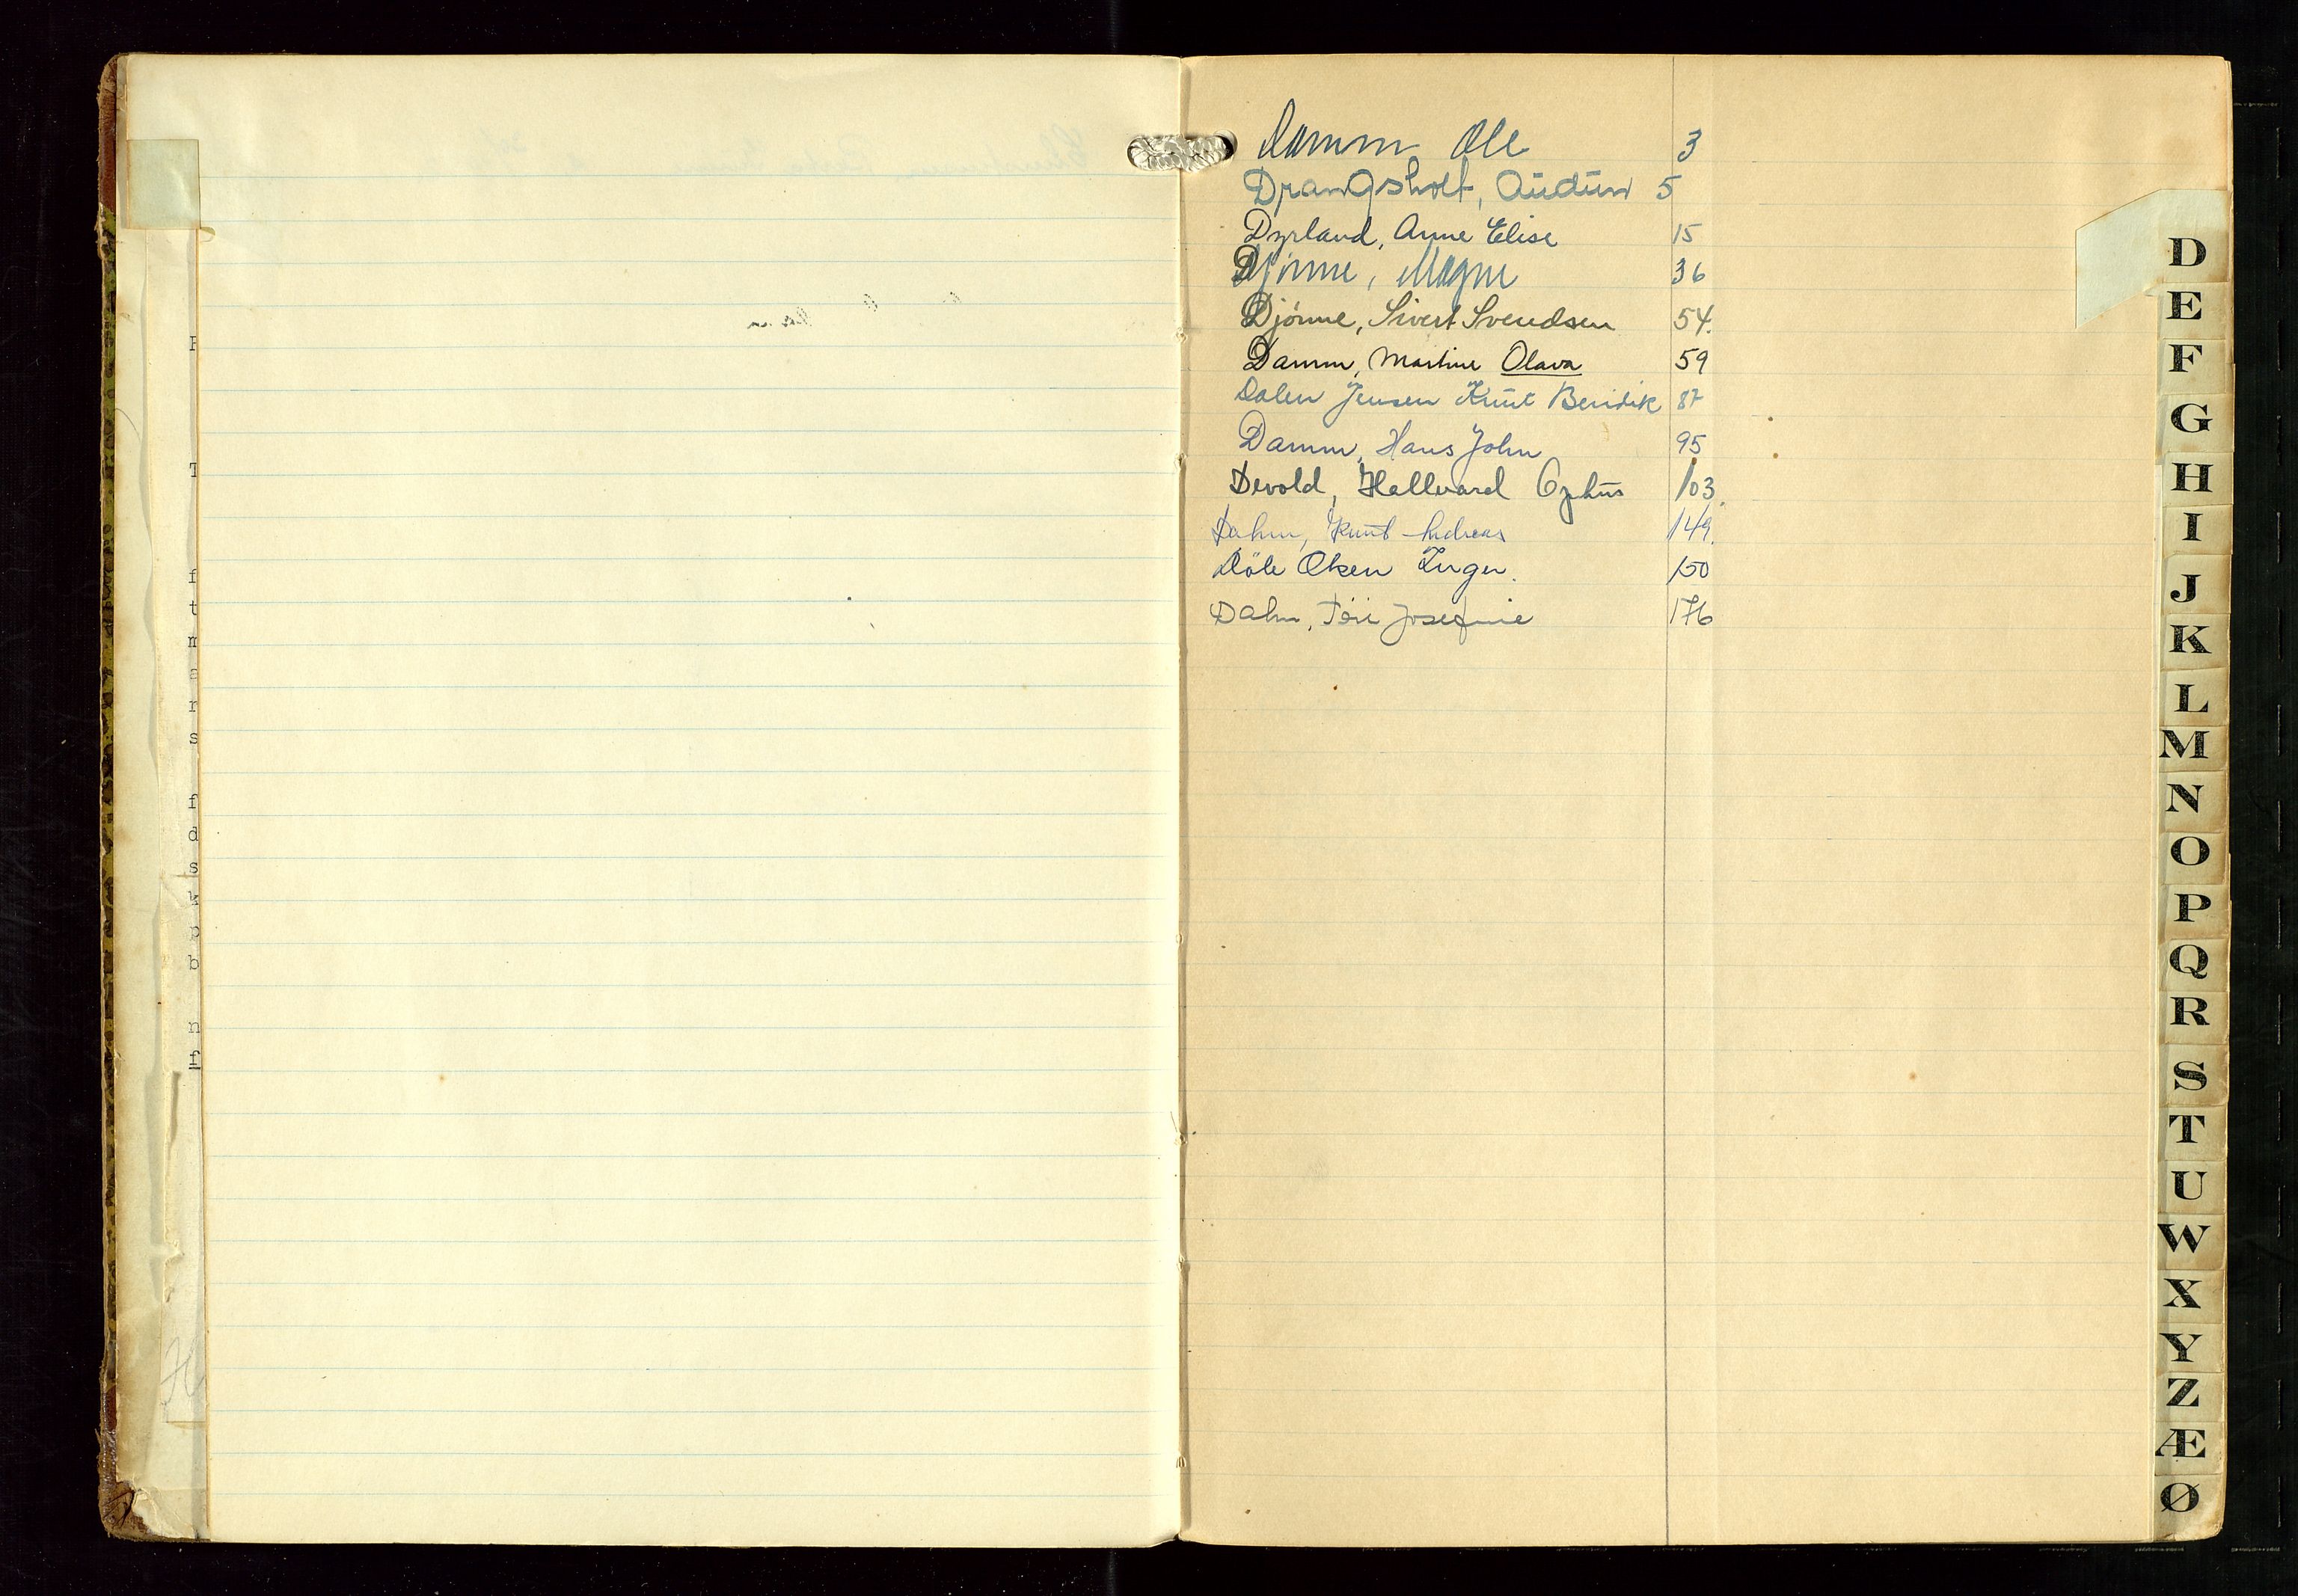 Damm Ole 3
Drangsholt, Audun 5
Dyrland, Anne Elise 15
Djönne, Magne 36
Djönne, Sivert Svendsen 54.
Damm, Martine Olava 59
Dalen Jensen Knut Bendik 87
Damm, Hans John 95
Devold, Hallvard Ophus 103.
Dahm, Knut Andreas 149.
Döle Olsen Inger. 150
Dahm, Josefine 176
D
E
F
G
H
I
J
K
L
M
N
O
P
Q
R
S
T
U
W
X
Y
Z
Æ
Ø
f
t
m
a
r
s
f
d
s
k
p
b
n
f